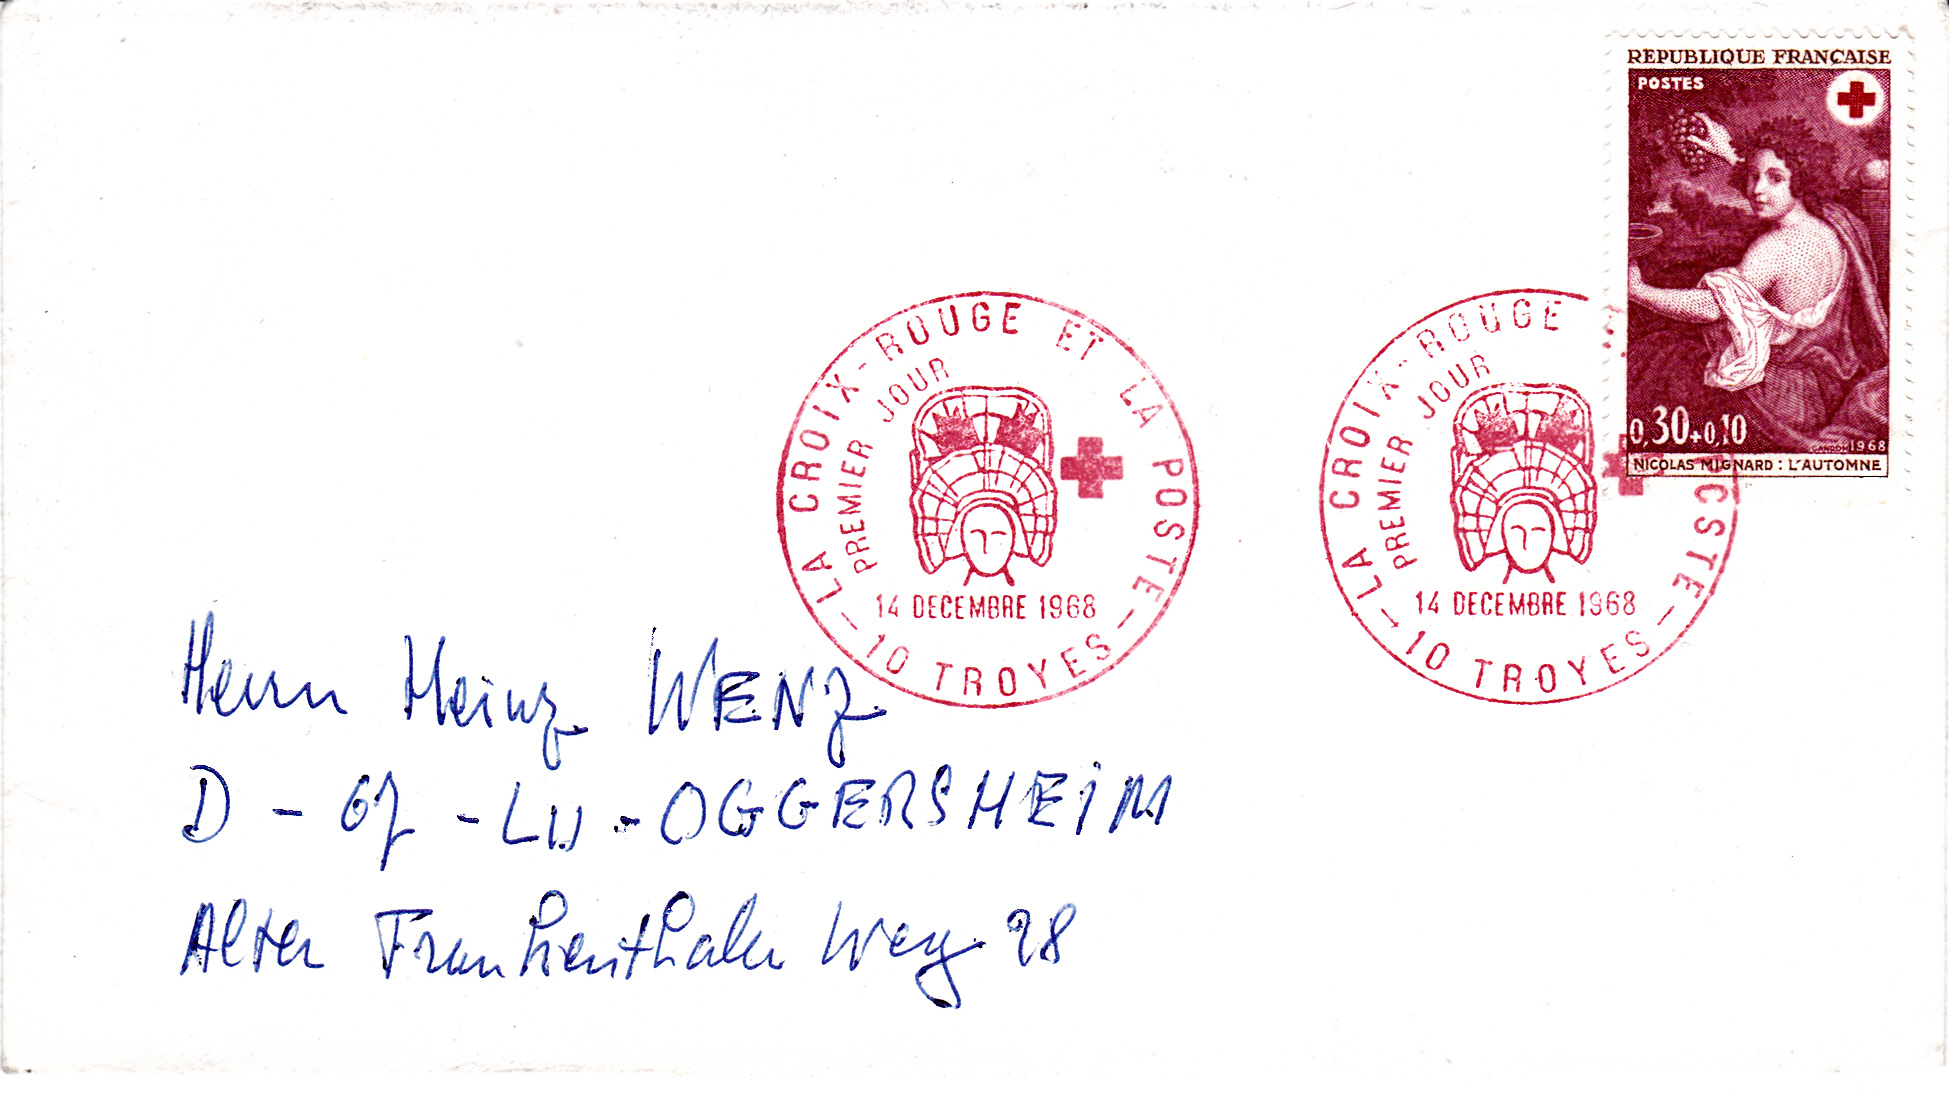 REPUBLIQUE FRANÇAISE
POSTES
0,30+0,10
GANDON 1968
NICOLAS MIGNARD : L'AUTOMNE
LA CROIX-ROUGE ET LA POSTE
PREMIER JOUR
14 DECEMBRE 1968
10 TROYES
LA CROIX-ROUGE POSTE
PREMIER JOUR
14 DECEMBRE 1968
10 TROYES
Herrn Heinz WENZ
D - 67 - LU - OGGERSHEIM
Alter Frankenthaler Weg 28